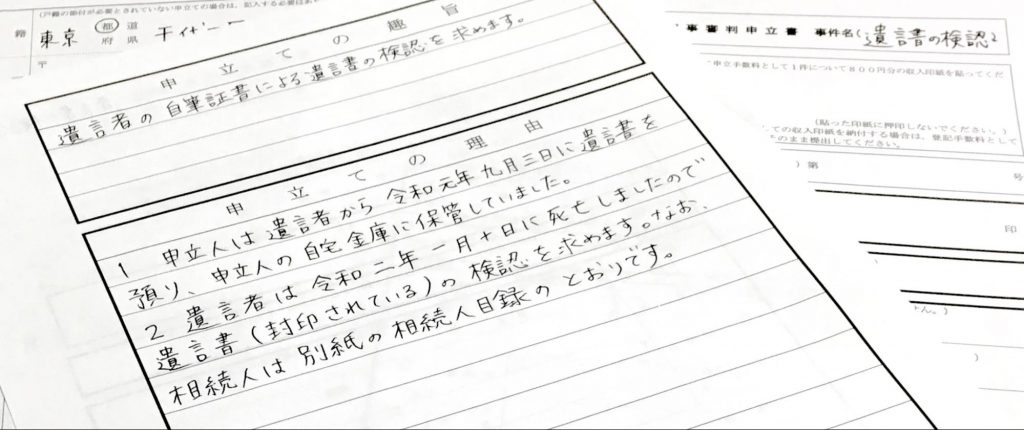 (戸籍の添付が必要とされていない申立ての場合は、記入する必要はあ
籍
東京 都 道
府 県
〒
申立ての趣旨
遺言者の自筆証書による遺言書の検認を求めます。
申立ての理由
1 申立人は遺言者から令和元年九月三日に遺言書を
預り、申立人の自宅金庫に保管していました。
2 遺言者は令和二年一月十日に死亡しましたので
遺言書(封印されている)の検認を求めます。なお、
相続人は別紙の相続人目録のとおりです。
事審判申立書 事件名(遺言書の検認)
申立手数料として1件について800円分の収入印紙を貼ってくだ
(貼った印紙に押印しないでください。)
ての収入印紙を納付する場合は、登記手数料として
のまま提出してください。
) 第 号
印
せん。)
)